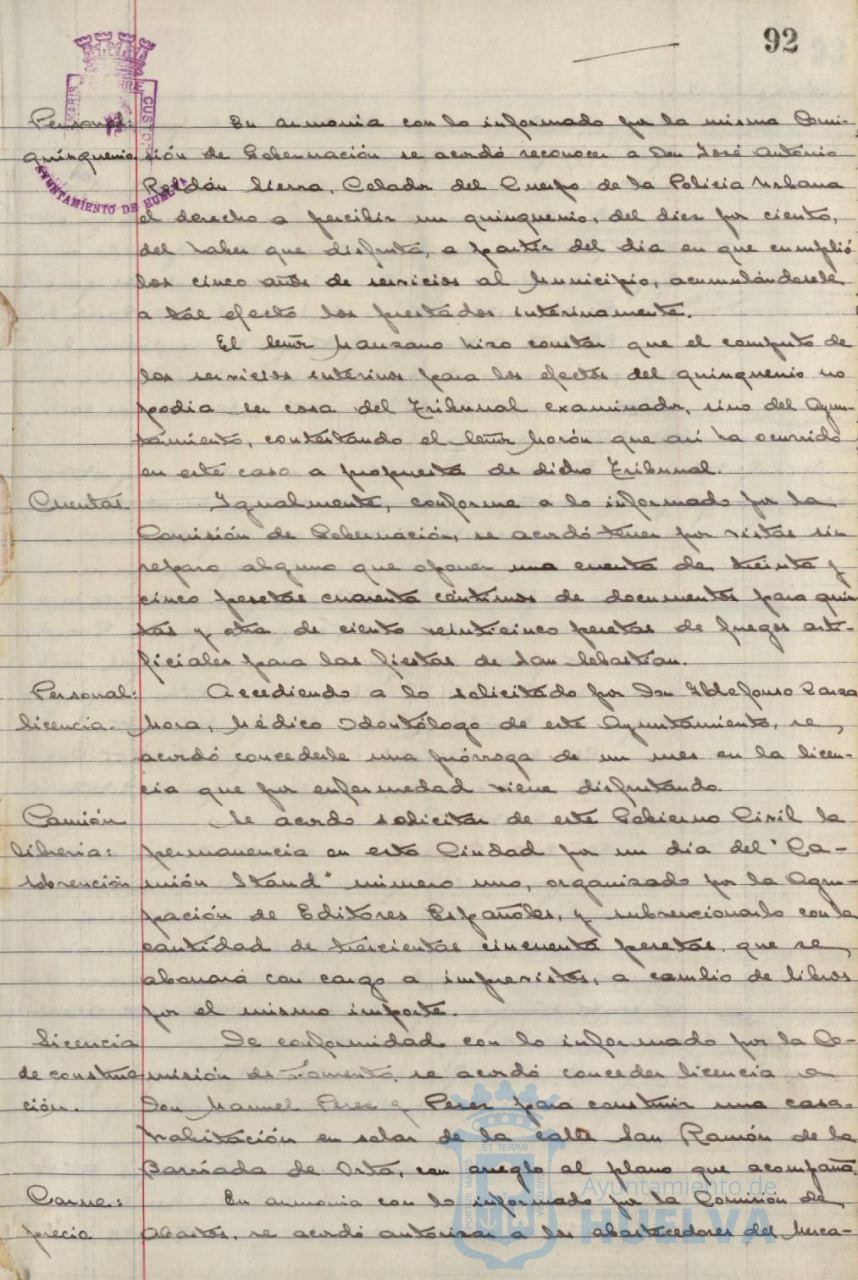 92
Personal: En armonia con lo informado por la misma Comi-
quinquenio sión de Gobernación se acordó reconocer a Don José Antonio
Roldán Sierra, Celador del Cuerpo de la Policia Urbana
el derecho a percibir un quinquenio, del diez por ciento,
del haber que disfruta, a partir del dia en que cumplió
los cinco años de servicios al Municipio, acumulándosele
a tal efecto los prestados interinamente.
El Señor Manzano hizo constar que el computo de
los servicios interinos para los efectos del quinquenio no
podia ser cosa del Tribunal examinador, sino del Ayun-
tamiento, contestando el Señor Morón que asi ha ocurrido
en este caso a propuesta de dicho Tribunal.
Cuentas Igualmente, conforme a lo informado por la
Comisión de Gobernación, se acordó tener por vistas sin
reparo alguno que oponer una cuenta de treinta y
cinco pesetas cuarenta céntimos de documentos para quin-
tas y otra de ciento veinticinco pesetas de fuegos arti-
ficiales para las fiestas de San Sebastian.
Personal: Accediendo a lo solicitado por Don Ildefonso
licencia. Mora, Médico Odontólogo de este Ayuntamiento, se
acordó concederle una prórroga de un mes en la licen-
cia que por enfermedad viene disfrutando.
Camión Se acordo solicitar de este Gobierno Civil la
libreria: permanencia en esta Ciudad por un dia del "Ca-
subvención mión Stand" número uno, organizado por la Agru-
pación de Editores Españoles, y subvencionarlo con la
cantidad de trescientas cincuenta pesetas que se
abonará con cargo a imprevistos, a cambio de libros
por el mismo importe.
Licencia De conformidad con lo informado por la Co-
de construc- misión de Fomento, se acordó conceder licencia a
ción. Don Manuel Perez y Perez para construir una casa-
habitación en solar de la calle San Ramón de la
Barriada de Orta, con arreglo al plano que acompaña.
Carne: En armonia con lo informado por la Comisión de
precio Abastos, se acordó autorizar a los abastecedores del Merca-
AYUNTAMIENTO DE HUELVA
Ayuntamiento de
HUELVA